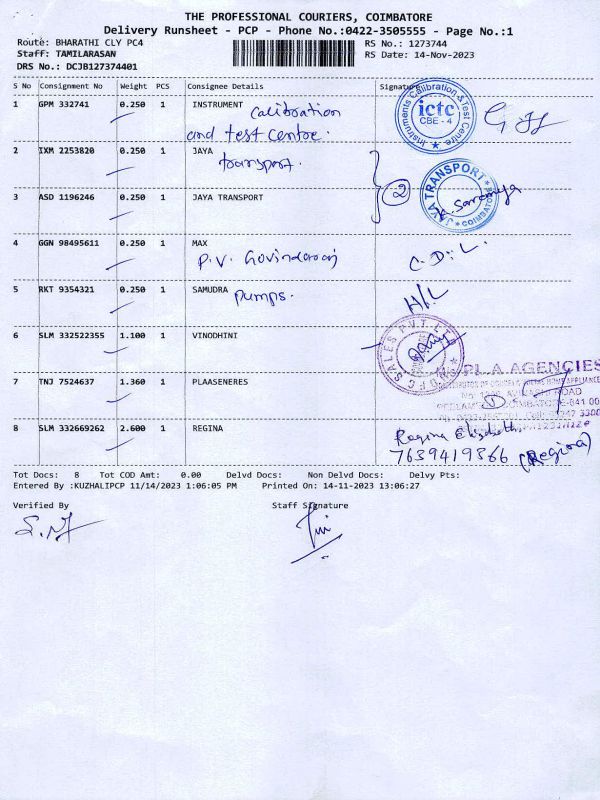 THE PROFESSIONAL COURIERS, COIMBATORE
Delivery Runsheet - PCP - Phone No.:0422-3505555 - Page No.:1
Route: BHARATHI CLY PC4
RS No.: 1273744
Staff: TAMILARASAN
RS Date: 14-Nov-2023
DRS No.: DCJB127374401
S No Consignment No Weight PCS Consignee Details Signature
1 GPM 332741 0.250 1 INSTRUMENT Calibration
and test centre.
Instruments Calibration & Test Centre
ictc
CBE - 4
2 IXM 2253820 0.250 1 JAYA
transport.
2
JAYA TRANSPORT
COIMBATORE
3 ASD 1196246 0.250 1 JAYA TRANSPORT
4 GGN 98495611 0.250 1 MAX
P.V. Govindaraj
5 RKT 9354321 0.250 1 SAMUDRA pumps.
H/L
6 SLM 332522355 1.100 1 VINODHINI
SALES PVT LTD
PL.A.AGENCIES
7 TNJ 7524637 1.360 1 PLAASENERES
8 SLM 332669262 2.600 1 REGINA
Regina Elizabeth
7639419866 (Regina)
Tot Docs: 8 Tot COD Amt: 0.00 Delvd Docs: Non Delvd Docs: Delvy Pts:
Entered By :KUZHALIPCP 11/14/2023 1:06:05 PM Printed On: 14-11-2023 13:06:27
Verified By Staff Signature